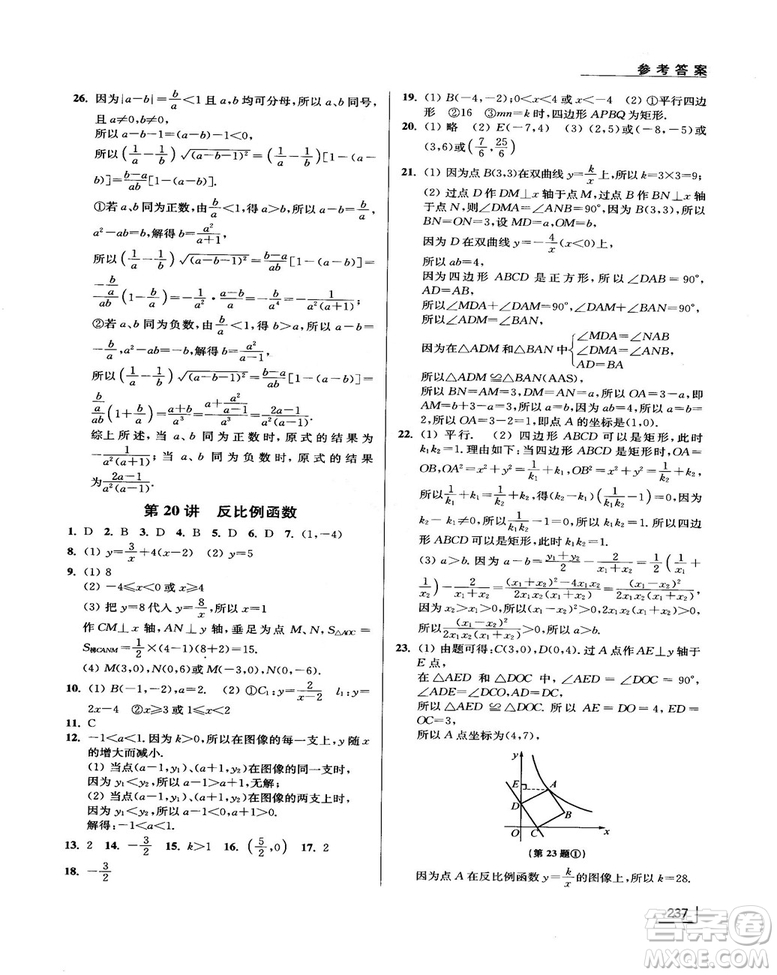 参考答案
26. 因为|a−b|=b/a<1 且 a、b 均可分母，所以 a、b 同号，
且 a≠0,b≠0，
所以 a−b−1=(a−b)−1<0，
所以(1/a−1/b)√((a−b−1)²)=(1/a−1/b)[1−(a−
b)]=(b−a)/(ab)[1−(a−b)].
①若 a、b 同为正数，由b/a<1，得 a>b，所以 a−b=b/a，
a²−ab=b，解得 b=a²/(a+1)，
所以(1/a−1/b)√((a−b−1)²)=(b−a)/(ab)[1−(a−b)]=
−(b/a)/(ab)(1−b/a)=−1/a²·(a−b)/a=−b/a⁴=−1/(a²(a+1))
②若 a、b 同为负数，由b/a<1，得 b>a，所以 b−a=
b/a，a²−ab=−b，解得 b=a²/(a−1)，
所以(1/a−1/b)√((a−b−1)²)=(b−a)/(ab)[1−(a−b)]=
(b/a)/(ab)(1+b/a)=1/a²·(a+b)/a=(a+a²/(a−1))/a³=(2a−1)/(a²(a−1))
综上所述，当 a、b 同为正数时，原式的结果为
−1/(a²(a+1))；当 a、b 同为负数时，原式的结果为
(2a−1)/(a²(a−1)).
第 20 讲 反比例函数
1. D 2. B 3. D 4. B 5. D 6. D 7. (1,−4)
8. (1) y=3/x+4(x−2) (2) 5
9. (1) 8
(2) −4≤x<0 或 x≥4
(3) 把 y=8 代入 y=8/x，所以 x=1.
作 CM⊥x 轴，AN⊥y 轴，垂足为点 M、N，S△AOC=
S梯CANM=1/2×(4−1)(2+8)=15
(4) M(3,0),N(0,6)或 M(−3,0),N(0,−6).
10. (1) B(−1,−2),a=2. (2) ①C₁:y=2/(2−x) l₁:y=
2x−4 ②x≥3 或 1≤x<2
11. C
12. −1<a<1. 因为 k>0，所以在图像的每一支上，y 随 x
的增大而减小.
(1) 当点(a−1,y₁)、(a−1,y₂)在图像的同一支上时，
因为 y₁<y₂，所以 a−1>a+1，无解；
(2) 当点(a−1,y₁)、(a−1,y₂)在图像的两支上时，
因为 y₁<y₂，所以 a−1<0，a+1>0，
解得：−1<a<1.
13. 2 14. −3/2 15. k>1 16. (5/2,0) 17. 2
18. −3/2
19. (1) B(−4,−2);0<x<4 或 x<−4 (2) ①平行四边
形 ②16 ③mn=k 时，四边形 APBQ 为矩形.
20. (1) 略 (2) E(−7,4) (3) (2,5)或(6,−3)或
(3,6)或(7/6,25/6)
21. (1) 因为点 B(3,3)在双曲线 y=k/x 上，所以 k=3×3=9；
(2) 过点 D 作 DM⊥x 轴于点 M，过点 B 作 BN⊥x 轴
于点 N，则∠DMA=∠ANB=90°，因为 B(3,3)，所以
BN=ON=3，设 MD=a,OM=b，
因为 D 在双曲线 y=−4/x(x<0)上，
所以 ab=4，
因为四边形 ABCD 是正方形，所以∠DAB=90°，
AD=AB，
所以∠MDA+∠DAM=90°，∠DAM+∠BAN=90°，
因为在△ADM 和△BAN 中{∠MDA=∠NAB
∠DMA=∠ANB，
AD=BA
所以△ADM≌△BAN(AAS)，
所以 BN=AM=3，DM=AN=a，所以 OA=3−a，即
AM=b+3−a=3，所以 a=b，因为 ab=4，所以 a=b=
2，所以 OA=3−2=1，即点 A 的坐标是(1,0).
22. (1) 平行. (2) 四边形 ABCD 可以是矩形，此时
k₁k₂=1. 理由如下：当四边形 ABCD 是矩形时，OA=
OB，OA²=x²+y²=1/k₁+k₁，OB²=x²+y²=1/k₂+k₂，
所以1/k₁+k₁=1/k₂+k₂，得(k₂−k₁)(1/(k₁k₂)−1)=0，所以
k₂−k₁≠0，所以1/(k₁k₂)−1=0，所以 k₁k₂=1，所以四边形
ABCD 可以是矩形，此时 k₁k₂=1.
(3) a>b. 因为 a−b=(y₁+y₂)/2−2/(x₁+x₂)=1/2(1/x₁+
1/x₂)−2/(x₁+x₂)=((x₁+x₂)²−4x₁x₂)/(2x₁x₂(x₁+x₂))=(x₁−x₂)²/(2x₁x₂(x₁+x₂)).
因为 x₂>x₁>0，所以(x₁−x₂)²>0，2x₁x₂(x₁+x₂)>0，
所以(x₁−x₂)²/(2x₁x₂(x₁+x₂))>0，所以 a>b.
23. (1) 由题可得：C(3,0)，D(0,4). 过点 A 作 AE⊥y 轴于
E 点，
在△AED 和△DOC 中，∠AED=∠DOC=90°，
∠ADE=∠DCO，AD=DC，
所以△AED≌△DOC. 所以 AE=DO=4，ED=
OC=3.
所以 A 点坐标为(4,7)，
y
E A
D
B
O C x
(第 23 题①)
因为点 A 在反比例函数 y=k/x 的图像上，所以 k=28.
237
答案圈
MXQE.COM